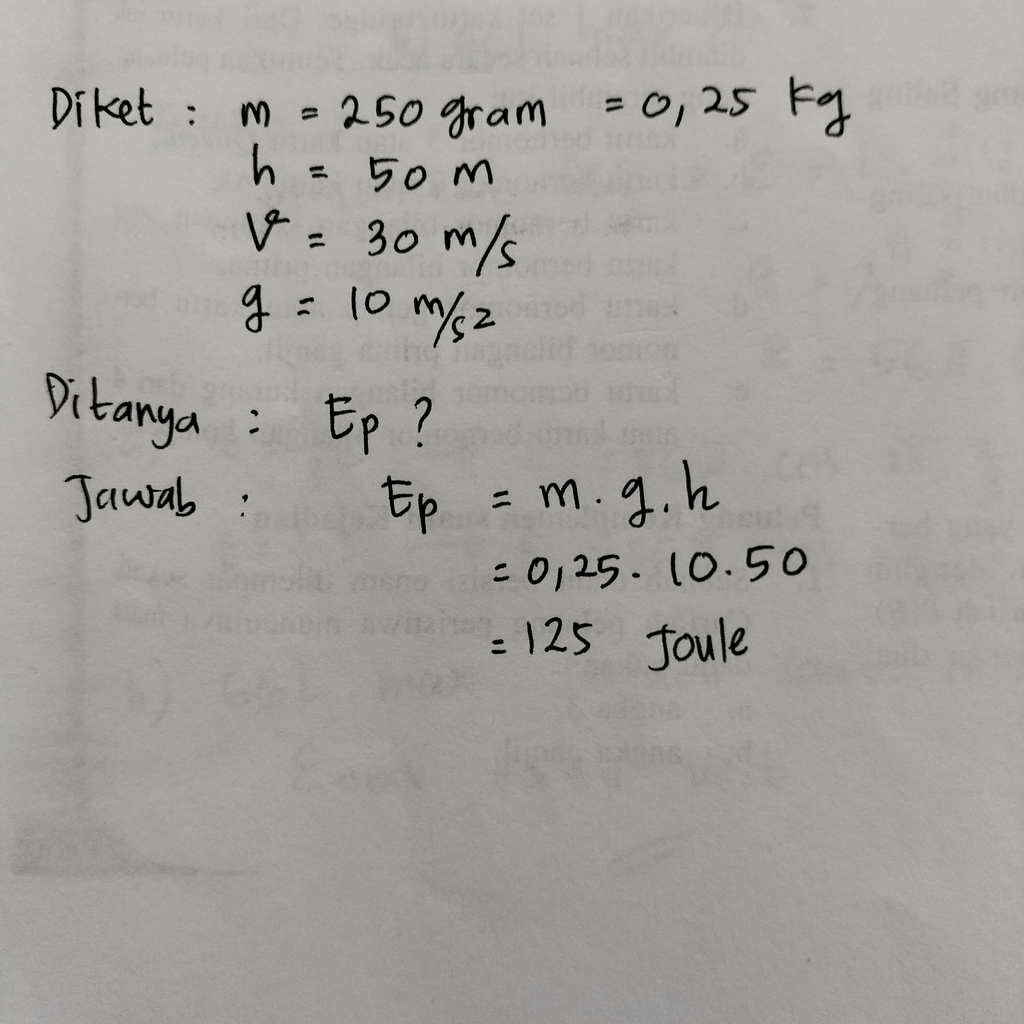 Diket : m = 250 gram = 0,25 Kg
h = 50 m
V = 30 m/s
g = 10 m/s2
Ditanya : Ep ?
Jawab : Ep = m . g . h
= 0,25 . 10 . 50
= 125 Joule